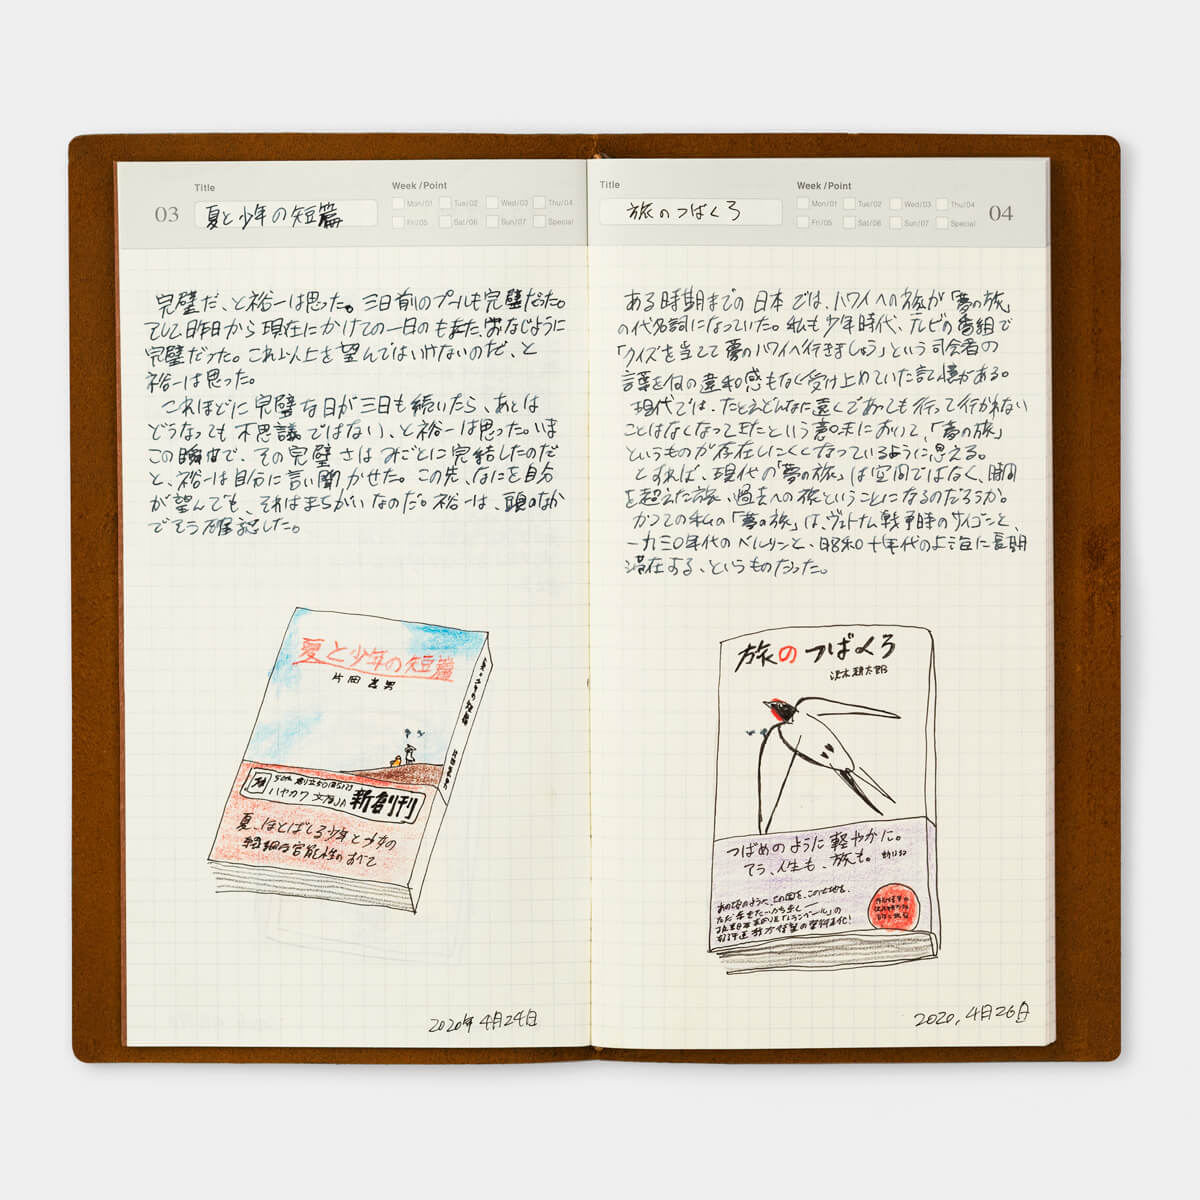 03
Title
夏と少年の短篇
Week/Point
Mon/01 Tue/02 Wed/03 Thu/04
Fri/05 Sat/06 Sun/07 Special
完璧だ、と裕一は思った。三日前のプールも完璧だった。
そして昨日から現在にかけての一日のもまた、おなじように
完璧だった。これ以上を望んではいけないのだ、と
裕一は思った。
これほどに完璧な日が三日も続いたら、あとは
どうなっても不思議ではない、と裕一は思った。いま
この瞬間で、その完璧さはみごとに完結したのだ
と、裕一は自分に言い聞かせた。この先、なにを自分
が望んでも、それはまちがいなのだ。裕一は、頭のなか
でそう確認した。
夏と少年の短篇
片岡義男
夏と少年の短篇
片岡義男
50th 創立50周年
ハヤカワ文庫JA 新創刊
夏、ほとばしる少年と少女の
繊細な官能性のすべて
2020年4月24日
Title
旅のつばくろ
Week/Point
Mon/01 Tue/02 Wed/03 Thu/04
Fri/05 Sat/06 Sun/07 Special
04
ある時期までの日本では、ハワイへの旅が「夢の旅」
の代名詞になっていた。私も少年時代、テレビの番組で
「クイズを当てて夢のハワイへ行きましょう」という司会者の
言葉を何の違和感もなく受け止めていた記憶がある。
現代では、たとえどんなに遠くであっても行って行かれない
ことはなくなってきたという意味において、「夢の旅」
というものが存在しにくくなっているように思える。
とすれば、現代の「夢の旅」は空間ではなく、時間
を超えた旅、過去への旅ということになるのだろうか。
かつての私の「夢の旅」は、ヴェトナム戦争時のサイゴンと、
一九三〇年代のベルリンと、昭和十年代の上海に長期
滞在する、というものだった。
旅のつばくろ
沢木耕太郎
つばめのように軽やかに。
そう、人生も、旅も。
あの頃のように、この国を、この土地を、
ただ歩きたいから歩く
2020,4月26日